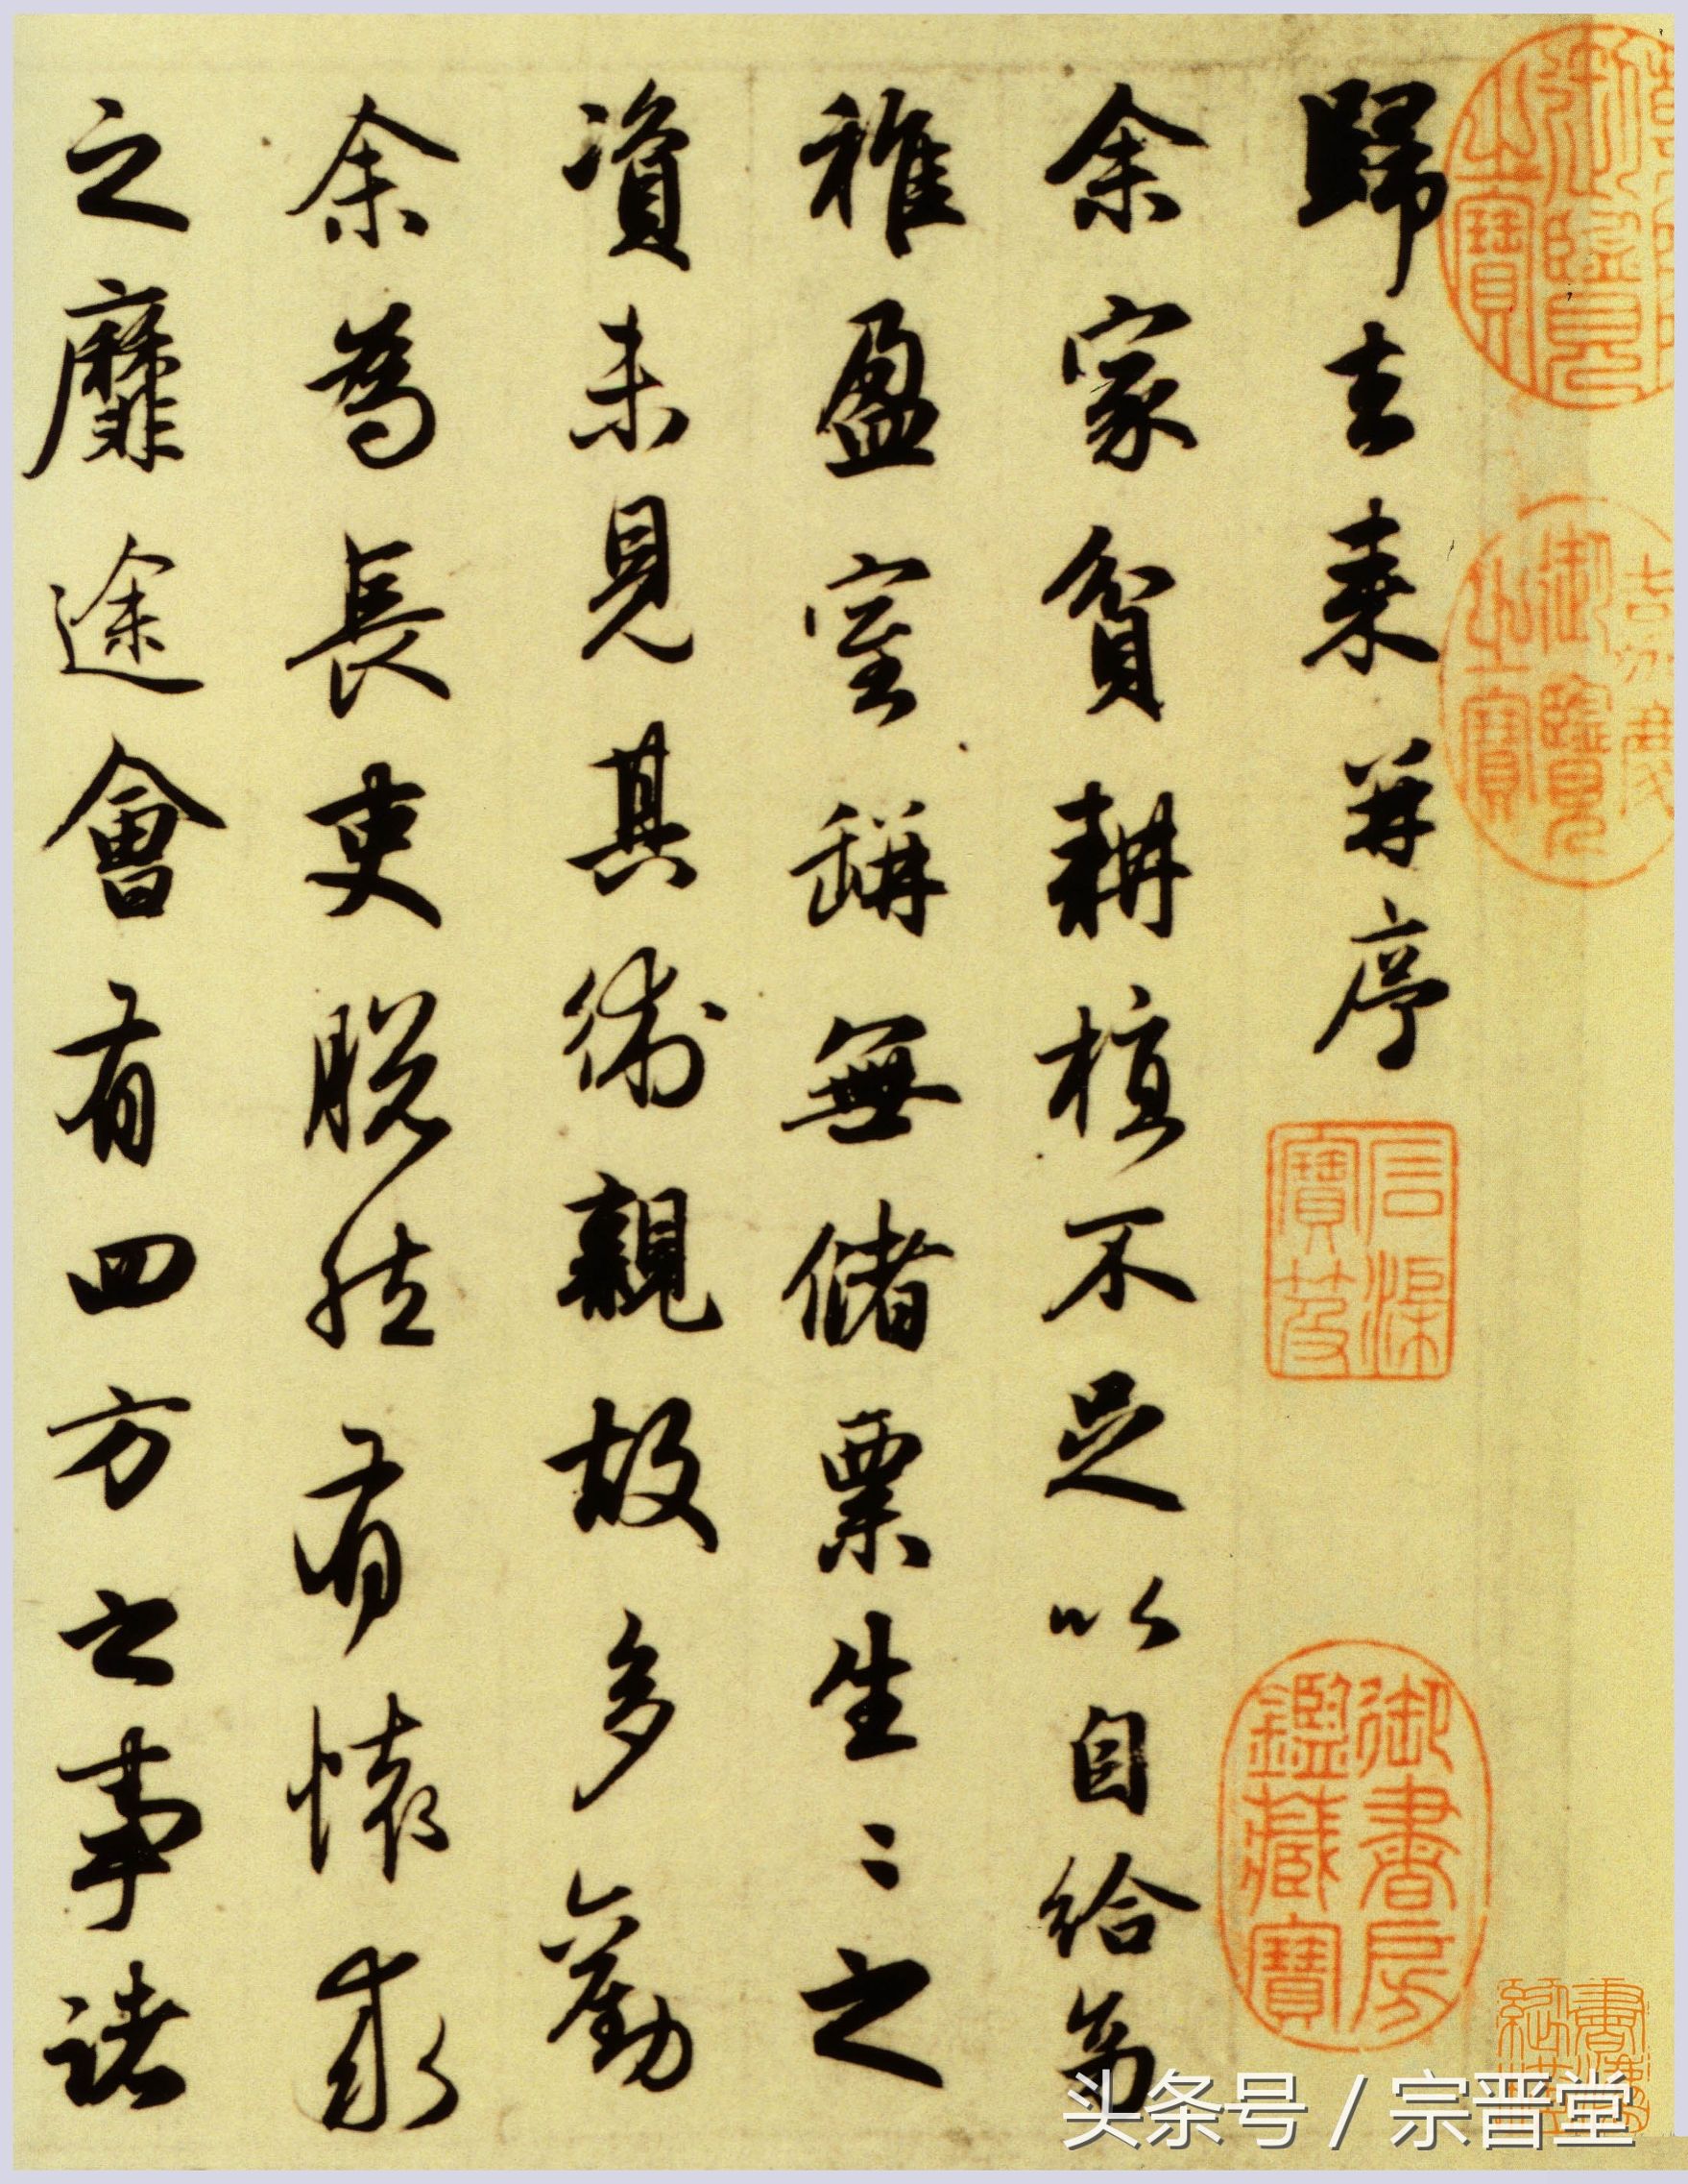 歸去来并序
余家貧耕植不足以自給幼
稚盈室缾無儲粟生〻之
資未見其術親故多勸
余為長吏脱然有懷求
之靡途會有四方之事諸
御書房鑑藏寶
石渠寶笈
御覽之寶
御覽之寶
头条号 / 宗晋堂